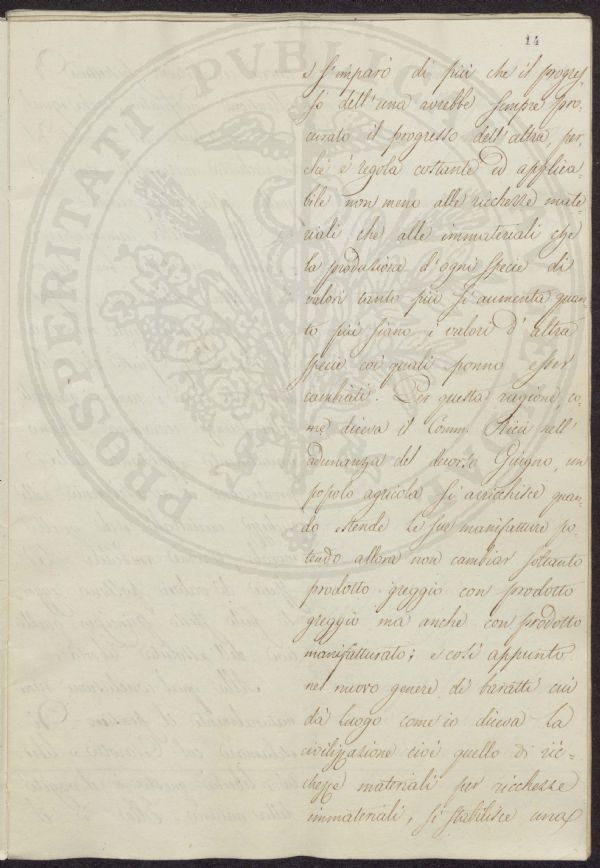 14
e s'imparò di più che il progres
so dell'una avrebbe sempre pro-
curato il progresso dell'altra, per-
chè è regola costante ed applica-
bile non meno alle ricchezze mate-
riali che alle immateriali che
la produzione d'ogni specie di
valori tanto più si aumenta quan
to più siano i valori d'altra
specie coi quali ponno esser
cambiati. Per questa ragione co-
me diceva il Comm. Ricci nell'
adunanza del decorso Giugno, un
popolo agricola si arricchisce quan-
do estende le sue manifatture po-
tendo allora non cambiar soltanto
prodotto greggio con prodotto
greggio ma anche con prodotto
manifatturato; e così appunto
nel nuovo genere di baratti cui
dà luogo come io diceva la
civilizzazione cioè quello di ric-
chezze materiali per ricchezze
immateriali, si stabilisce una
PROSPERITATI PUBLICAE